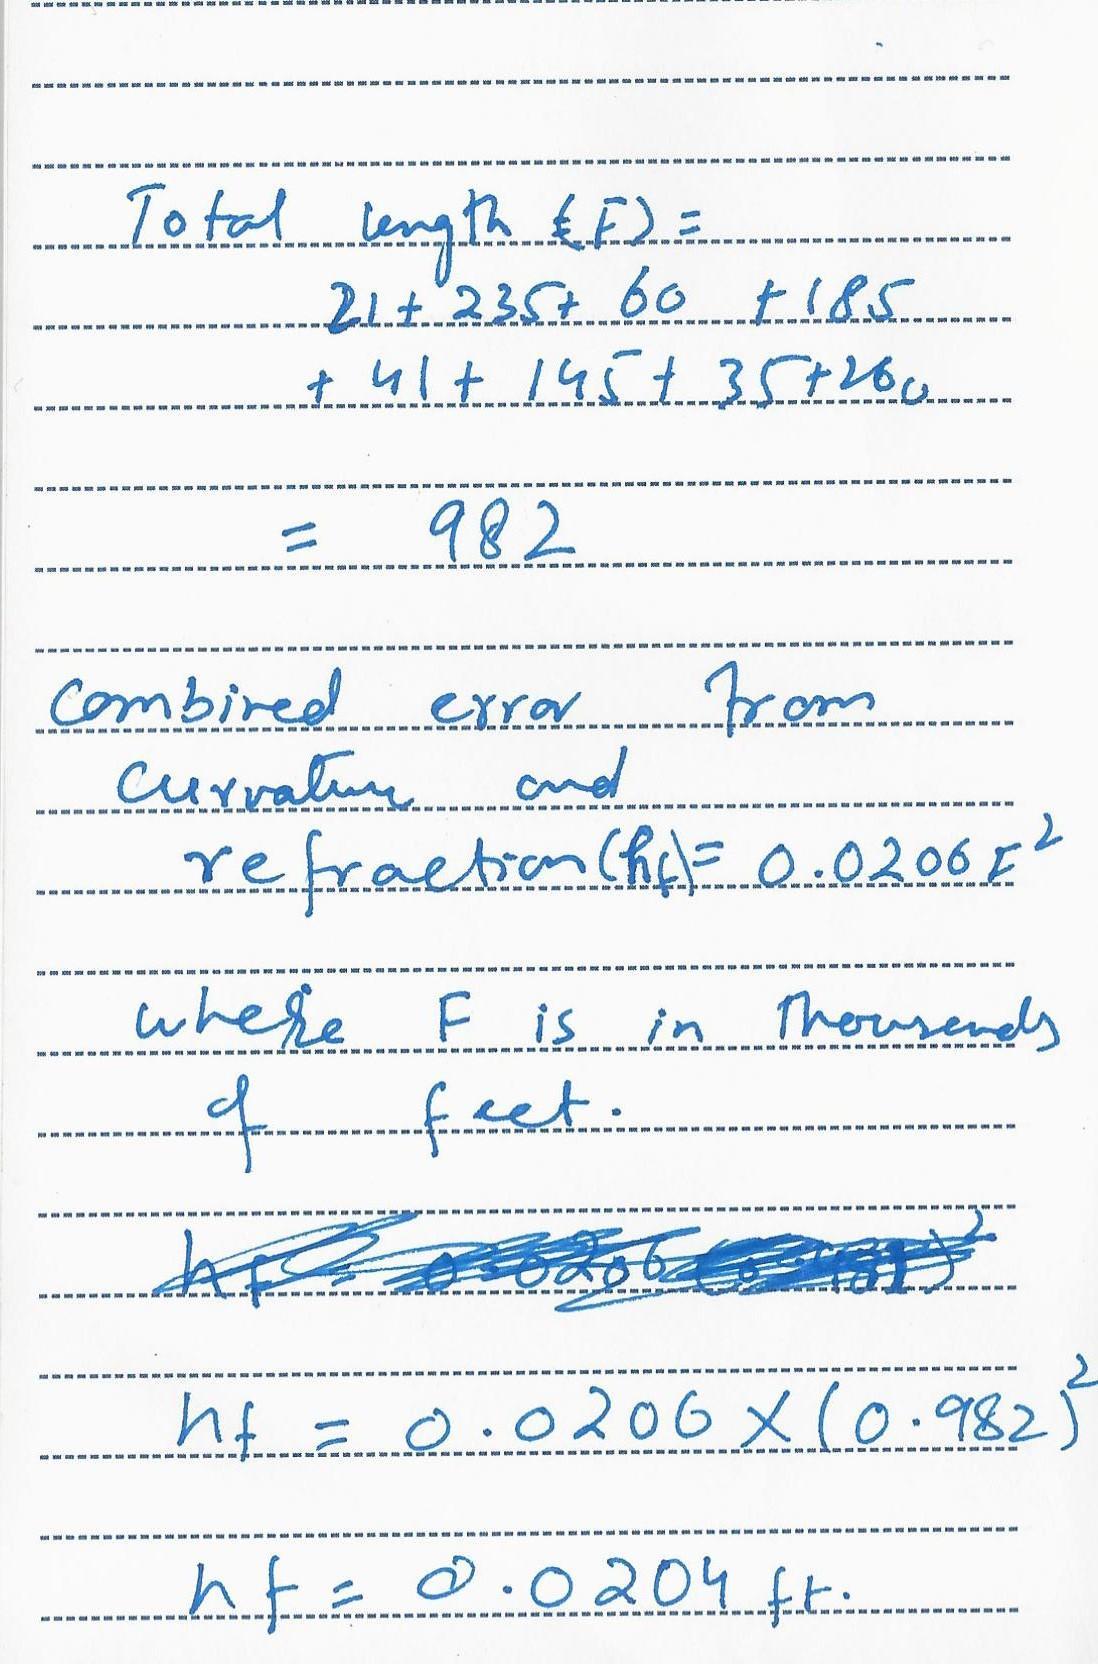 Total length (F) =
21 + 235 + 60 + 185
+ 41 + 145 + 35 + 260
= 982
combined error from
curvature and
refraction (hf) = 0.0206 F²
where F is in thousands
of feet.
hf = 0.0206
hf = 0.0206 × (0.982)²
hf = 0.0204 ft.